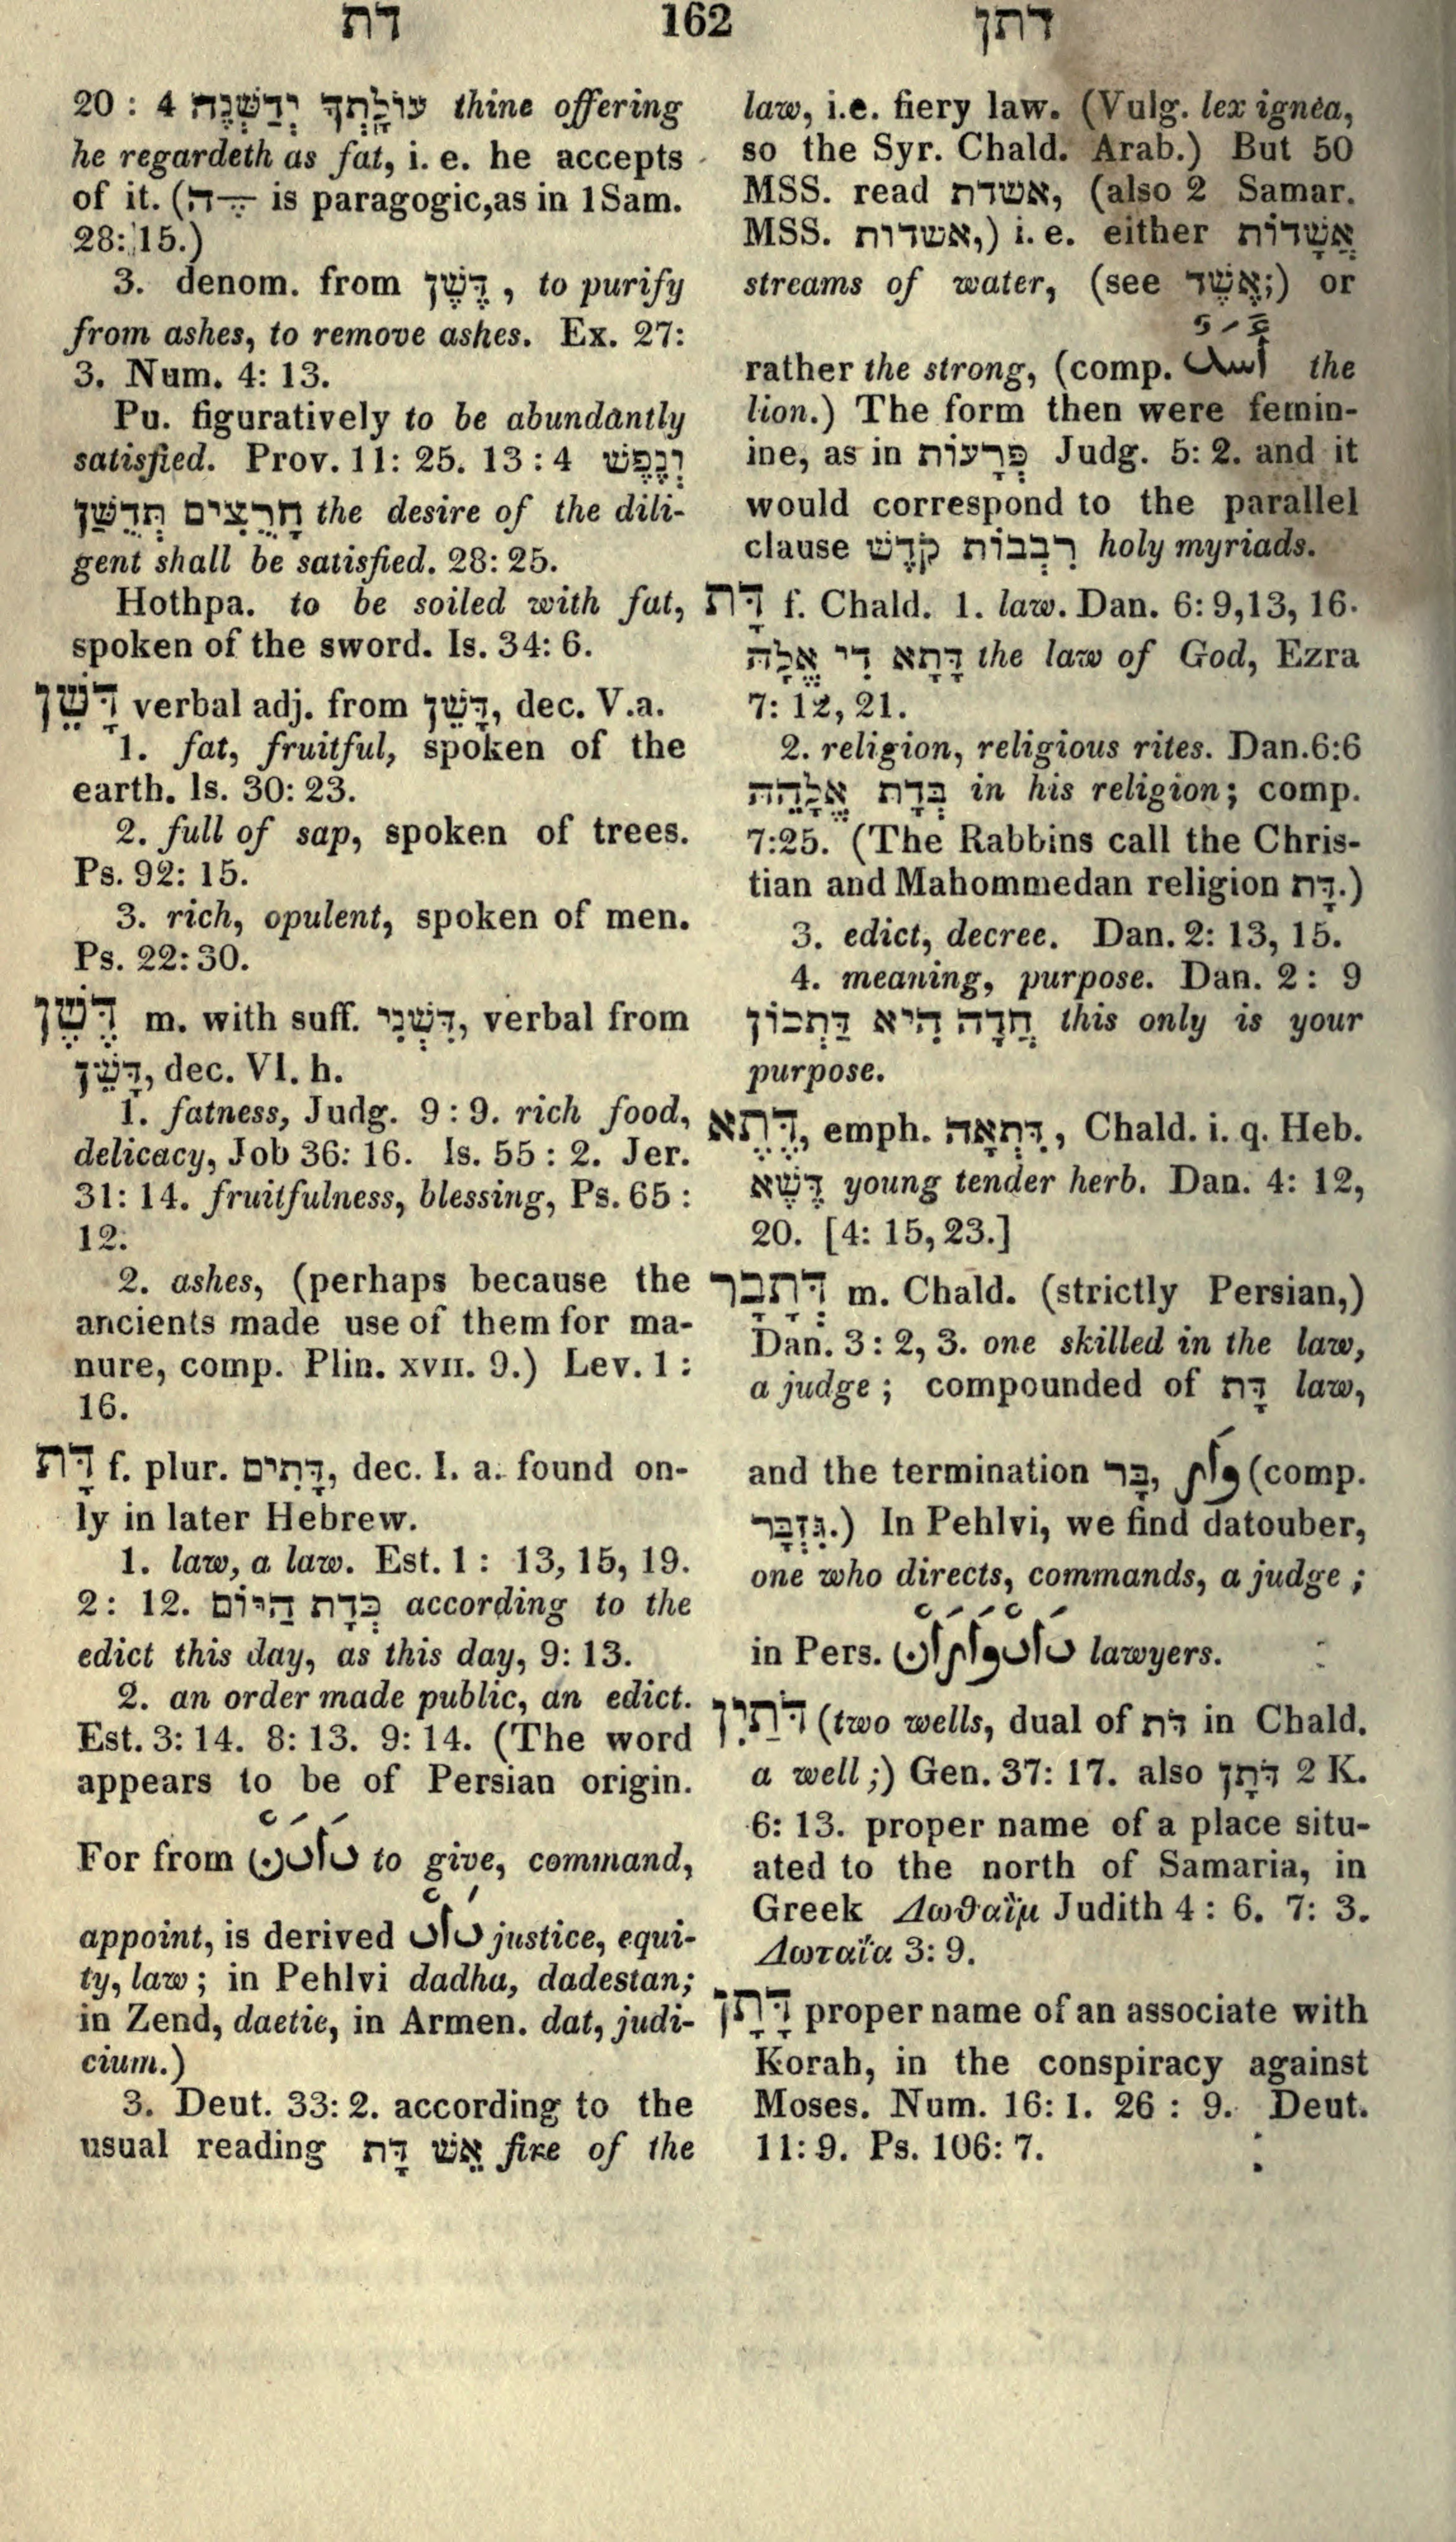 דת 162 דתן
20 : 4 עוֹלָתְךָ יְדַשְּׁנֶה thine offering
he regardeth as fat, i. e. he accepts
of it. (־ֶה is paragogic, as in 1 Sam.
28: 15.)
3. denom. from דֶּשֶׁן , to purify
from ashes, to remove ashes. Ex. 27:
3. Num. 4: 13.
Pu. figuratively to be abundantly
satisfied. Prov. 11: 25. 13 : 4 וְנֶפֶשׁ
חָרֻצִים תְּדֻשַּׁן the desire of the dili-
gent shall be satisfied. 28: 25.
Hothpa. to be soiled with fat,
spoken of the sword. Is. 34: 6.
דָּשֵׁן verbal adj. from דָּשֵׁן, dec. V.a.
1. fat, fruitful, spoken of the
earth. Is. 30: 23.
2. full of sap, spoken of trees.
Ps. 92: 15.
3. rich, opulent, spoken of men.
Ps. 22: 30.
דֶּשֶׁן m. with suff. דִּשְׁנִי, verbal from
דָּשֵׁן, dec. VI. h.
1. fatness, Judg. 9 : 9. rich food,
delicacy, Job 36: 16. Is. 55 : 2. Jer.
31: 14. fruitfulness, blessing, Ps. 65 :
12.
2. ashes, (perhaps because the
ancients made use of them for ma-
nure, comp. Plin. XVII. 9.) Lev. 1 :
16.
דָּת f. plur. דָּתִים, dec. I. a. found on-
ly in later Hebrew.
1. law, a law. Est. 1 : 13, 15, 19.
2 : 12. כְּדָת הַיּוֹם according to the
edict this day, as this day, 9: 13.
2. an order made public, an edict.
Est. 3: 14. 8: 13. 9: 14. (The word
appears to be of Persian origin.
For from دَادَنْ to give, command,
appoint, is derived دَادْ justice, equi-
ty, law ; in Pehlvi dadha, dadestan;
in Zend, daetie, in Armen. dat, judi-
cium.)
3. Deut. 33: 2. according to the
usual reading אֵשׁ דָּת fire of the
law, i.e. fiery law. (Vulg. lex ignea,
so the Syr. Chald. Arab.) But 50
MSS. read אשדת, (also 2 Samar.
MSS. אשדות,) i. e. either אֲשָׁדוֹת
streams of water, (see אֶשֶׁד;) or
rather the strong, (comp. أَسَدٌ the
lion.) The form then were femin-
ine, as in פְּרָעוֹת Judg. 5: 2. and it
would correspond to the parallel
clause רִבְבוֹת קֹדֶשׁ holy myriads.
דָּת f. Chald. 1. law. Dan. 6: 9, 13, 16.
דָּתָא דִי אֱלָהּ the law of God, Ezra
7: 12, 21.
2. religion, religious rites. Dan. 6:6
בְּדָת אֱלָהֵהּ in his religion; comp.
7:25. (The Rabbins call the Chris-
tian and Mahommedan religion דָּת.)
3. edict, decree. Dan. 2: 13, 15.
4. meaning, purpose. Dan. 2 : 9
חֲדָה הִיא דַּתְכוֹן this only is your
purpose.
דֶּתֶא, emph. דִּתְאָה , Chald. i. q. Heb.
דֶּשֶׁא young tender herb. Dan. 4: 12,
20. [4: 15, 23.]
דְּתָבָר m. Chald. (strictly Persian,)
Dan. 3 : 2, 3. one skilled in the law,
a judge ; compounded of דָּת law,
and the termination בָּר, وَار (comp.
גִּזְבָּר.) In Pehlvi, we find datouber,
one who directs, commands, a judge ;
in Pers. دَادْوَرَانْ lawyers.
דֹּתַיִן (two wells, dual of דֹּת in Chald.
a well ;) Gen. 37: 17. also דֹּתָן 2 K.
6: 13. proper name of a place situ-
ated to the north of Samaria, in
Greek Δωθαΐμ Judith 4 : 6. 7: 3.
Δωταία 3: 9.
דָּתָן proper name of an associate with
Korah, in the conspiracy against
Moses. Num. 16: 1. 26 : 9. Deut.
11: 9. Ps. 106: 7.